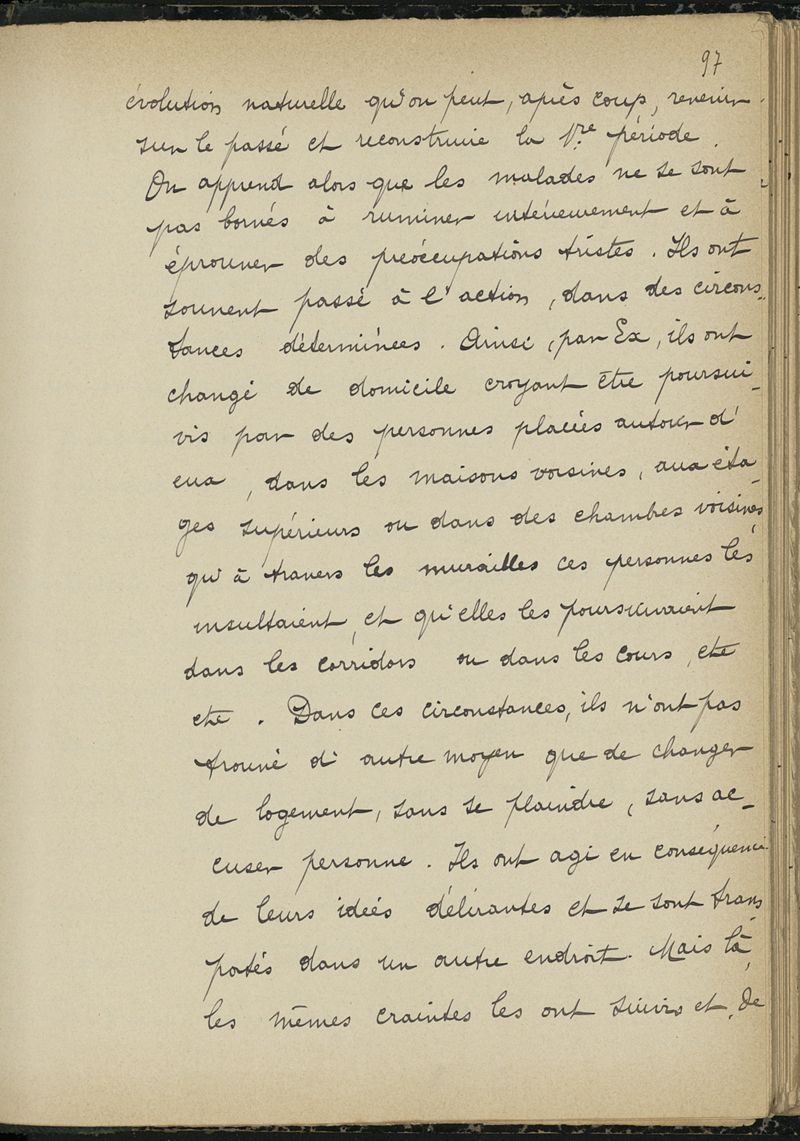 97
évolution naturelle qu'on peut, après coup, revenir
sur le passé et reconstruire la 1re période.
On apprend alors que les malades ne se sont
pas bornés à ruminer intérieurement et à
éprouver des préoccupations tristes. Ils ont
souvent passé à l'action, dans des circons-
tances déterminées. Ainsi, par Ex, ils ont
changé de domicile croyant être poursui-
vis par des personnes placées autour d'
eux, dans les maisons voisines, aux éta-
ges supérieurs ou dans des chambres voisines,
qu'à travers les murailles ces personnes les
insultaient, et qu'elles les poursuivaient
dans les corridors ou dans les cours, etc
etc. Dans ces circonstances, ils n'ont pas
trouvé d'autre moyen que de changer
de logement, sans se plaindre, sans ac-
cuser personne. Ils ont agi en conséquence
de leurs idées délirantes et se sont trans
portés dans un autre endroit. Mais là,
les mêmes craintes les ont suivis et, de